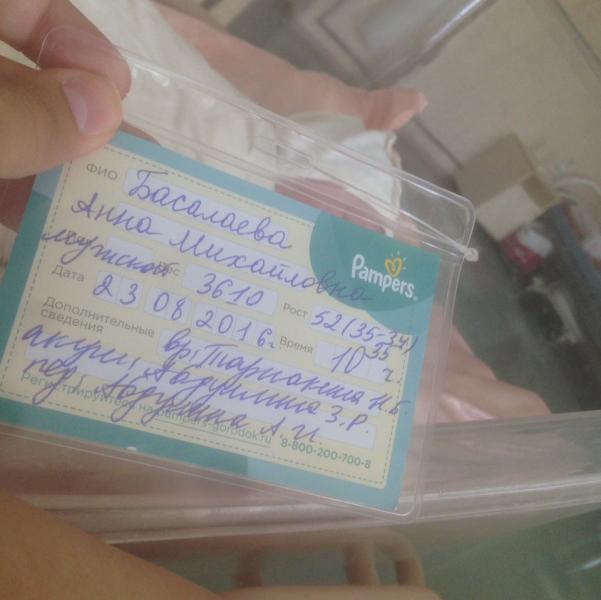 ФИО Басалаева
Анна Михайловна
Pampers
мужской Вес 3610 Рост 52 (35-34)
Дата 23 08 2016г Время 10 35 ч.
Дополнительные сведения вр. Н.Б.
акуш, З.Р.
пед, А.И.
Регистрируйтесь на pampers-gorodok.ru 8-800-200-700-8